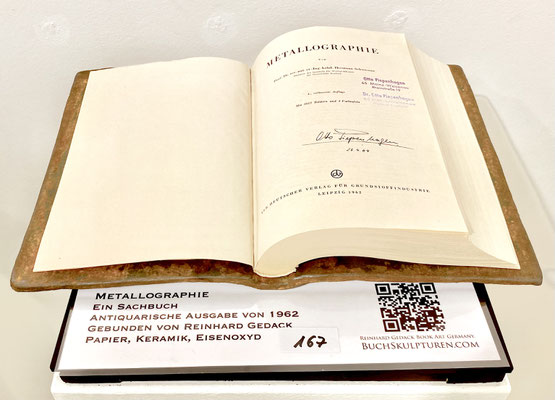 METALLOGRAPHIE
Von
Otto Piepenhagen
65 Mainz
Dr. Otto Piepenhagen
Otto Piepenhagen
VEB DEUTSCHER VERLAG FÜR GRUNDSTOFFINDUSTRIE
LEIPZIG 1962
METALLOGRAPHIE
EIN SACHBUCH
ANTIQUARISCHE AUSGABE VON 1962
GEBUNDEN VON REINHARD GEDACK
PAPIER, KERAMIK, EISENOXYD
167
REINHARD GEDACK BOOK ART GERMANY
BUCHSKULPTUREN.COM